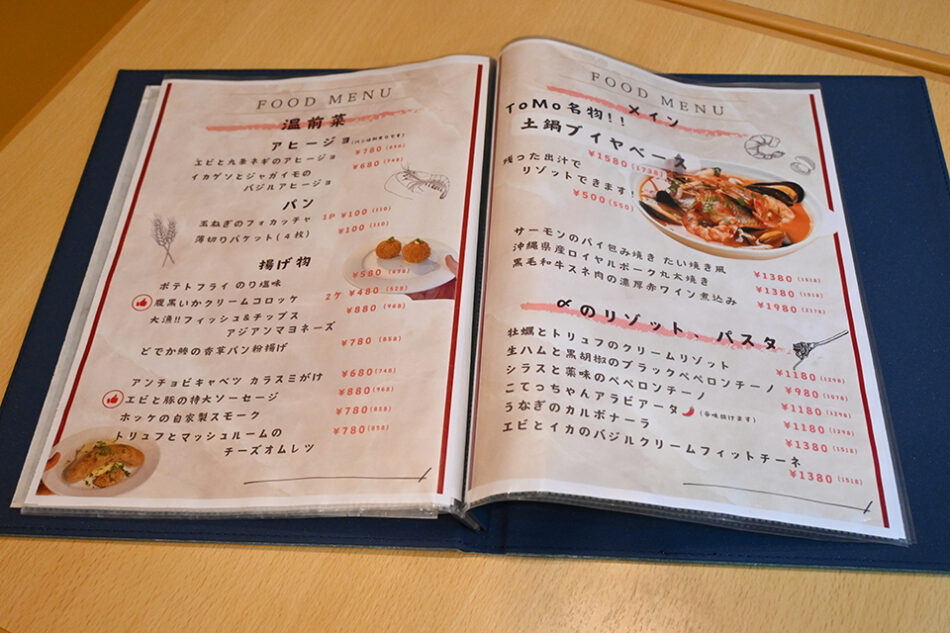 FOOD MENU
温前菜
アヒージョ
エビと九条ネギのアヒージョ ¥780
イカゲンとジャガイモの ¥680
バジルアヒージョ
パン
玉ねぎのフォカッチャ 1P ¥100 (110)
薄切りバケット(4枚) ¥100 (110)
揚げ物
ポテトフライ のり塩味 ¥580
腹黒いかクリームコロッケ 2ケ ¥480 (528)
大漁!!フィッシュ&チップス ¥880 (968)
アジアンマヨネーズ
どでか鯵の香草パン粉揚げ ¥780 (858)
アンチョビキャベツ カラスミがけ ¥680 (748)
エビと豚の特大ソーセージ ¥880 (968)
ホッケの自家製スモーク ¥780 (858)
トリュフとマッシュルームの ¥780 (858)
チーズオムレツ
FOOD MENU
メイン
ToMo名物!!
土鍋ブイヤベース
¥1580 (1738)
残った出汁で
リゾットできます!
¥500 (550)
サーモンのパイ包み焼き たい焼き風 ¥1380 (1518)
沖縄県産ロイヤルポーク丸太焼き ¥1380 (1518)
黒毛和牛スネ肉の濃厚赤ワイン煮込み ¥1980 (2178)
αのリゾット、パスタ
牡蠣とトリュフのクリームリゾット ¥1180 (1298)
生ハムと黒胡椒のブラックペペロンチーノ ¥980 (1078)
シラスと薬味のペペロンチーノ ¥1180 (1298)
こてっちゃんアラビアータ (辛味抜けます) ¥1180 (1298)
うなぎのカルボナーラ ¥1380 (1518)
エビとイカのバジルクリームフィットチーネ ¥1380 (1518)